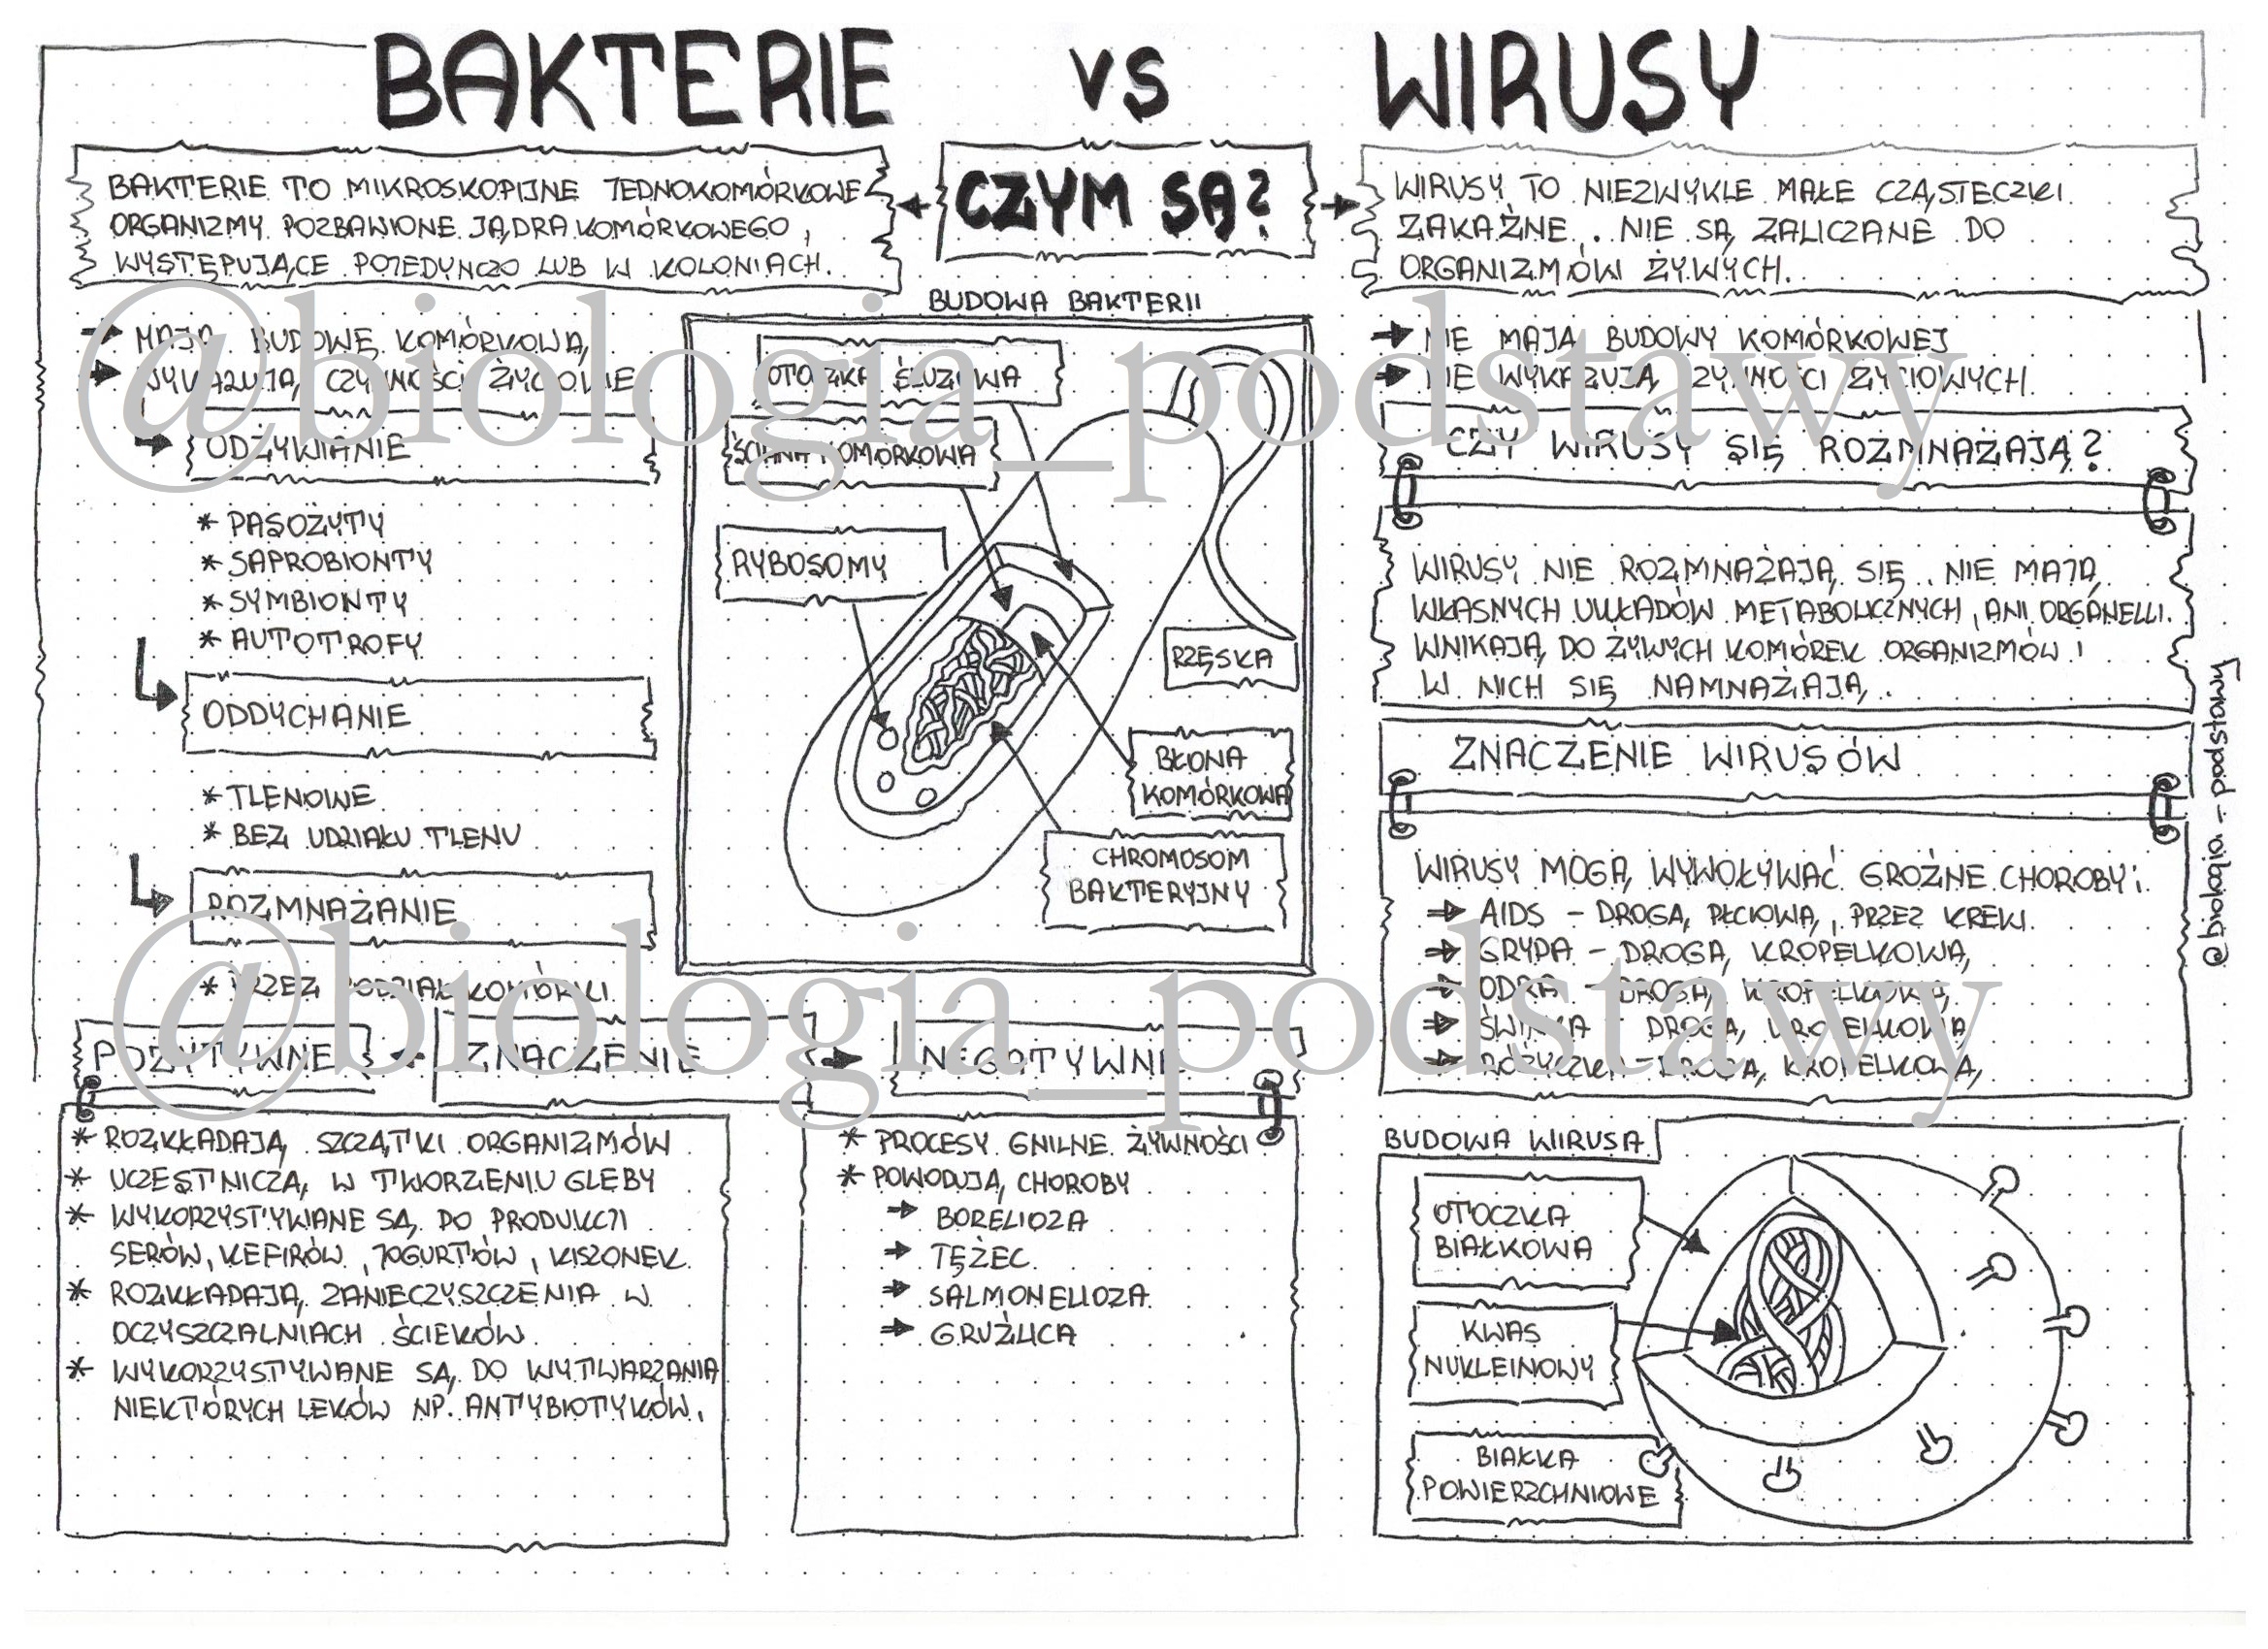 BAKTERIE VS WIRUSY
CZYM SĄ?
BAKTERIE TO MIKROSKOPIJNE JEDNOKOMÓRKOWE
ORGANIZMY POZBAWIONE JĄDRA KOMÓRKOWEGO,
WYSTĘPUJĄCE POJEDYNCZO LUB W KOLONIACH.
MAJĄ BUDOWĘ KOMÓRKOWĄ,
WYKAZUJĄ CZYNNOŚCI ŻYCIOWE
ODŻYWIANIE
* PASOŻYTY
* SAPROBIONTY
* SYMBIONTY
* AUTOTROFY
ODDYCHANIE
* TLENOWE
* BEZ UDZIAŁU TLENU
ROZMNAŻANIE
* PRZEZ PODZIAŁ KOMÓRKI
BUDOWA BAKTERII
OTOCZKA ŚLUZOWA
ŚCIANA KOMÓRKOWA
RYBOSOMY
RZĘSKA
BŁONA
KOMÓRKOWA
CHROMOSOM
BAKTERYJNY
ZNACZENIE
POZYTYWNE
* ROZKŁADAJĄ SZCZĄTKI ORGANIZMÓW
* UCZESTNICZĄ W TWORZENIU GLEBY
* WYKORZYSTYWANE SĄ DO PRODUKCJI
SERÓW, KEFIRÓW, JOGURTÓW, KISZONEK
* ROZKŁADAJĄ ZANIECZYSZCZENIA W
OCZYSZCZALNIACH ŚCIEKÓW
* WYKORZYSTYWANE SĄ DO WYTWARZANIA
NIEKTÓRYCH LEKÓW NP. ANTYBIOTYKÓW.
NEGATYWNE
* PROCESY GNILNE ŻYWNOŚCI
* POWODUJĄ CHOROBY
BORELIOZA
TĘŻEC
SALMONELLOZA
GRUŹLICA
WIRUSY TO NIEZWYKLE MAŁE CZĄSTECZKI
ZAKAŹNE. NIE SĄ ZALICZANE DO
ORGANIZMÓW ŻYWYCH.
NIE MAJĄ BUDOWY KOMÓRKOWEJ
NIE WYKAZUJĄ CZYNNOŚCI ŻYCIOWYCH
CZY WIRUSY SIĘ ROZMNAŻAJĄ?
WIRUSY NIE ROZMNAŻAJĄ SIĘ. NIE MAJĄ
WŁASNYCH UKŁADÓW METABOLICZNYCH, ANI ORGANELLI.
WNIKAJĄ DO ŻYWYCH KOMÓREK ORGANIZMÓW I
W NICH SIĘ NAMNAŻAJĄ.
ZNACZENIE WIRUSÓW
WIRUSY MOGĄ WYWOŁYWAĆ GROŹNE CHOROBY:
AIDS - DROGĄ PŁCIOWĄ, PRZEZ KREW.
GRYPA - DROGĄ KROPELKOWĄ,
ODRA - DROGĄ KROPELKOWĄ,
ŚWINKA - DROGĄ KROPELKOWĄ
RÓŻYCZKA - DROGĄ KROPELKOWĄ,
BUDOWA WIRUSA
OTOCZKA
BIAŁKOWA
KWAS
NUKLEINOWY
BIAŁKA
POWIERZCHNIOWE
@biologia_podstawy
@biologia_podstawy
@biologia_podstawy